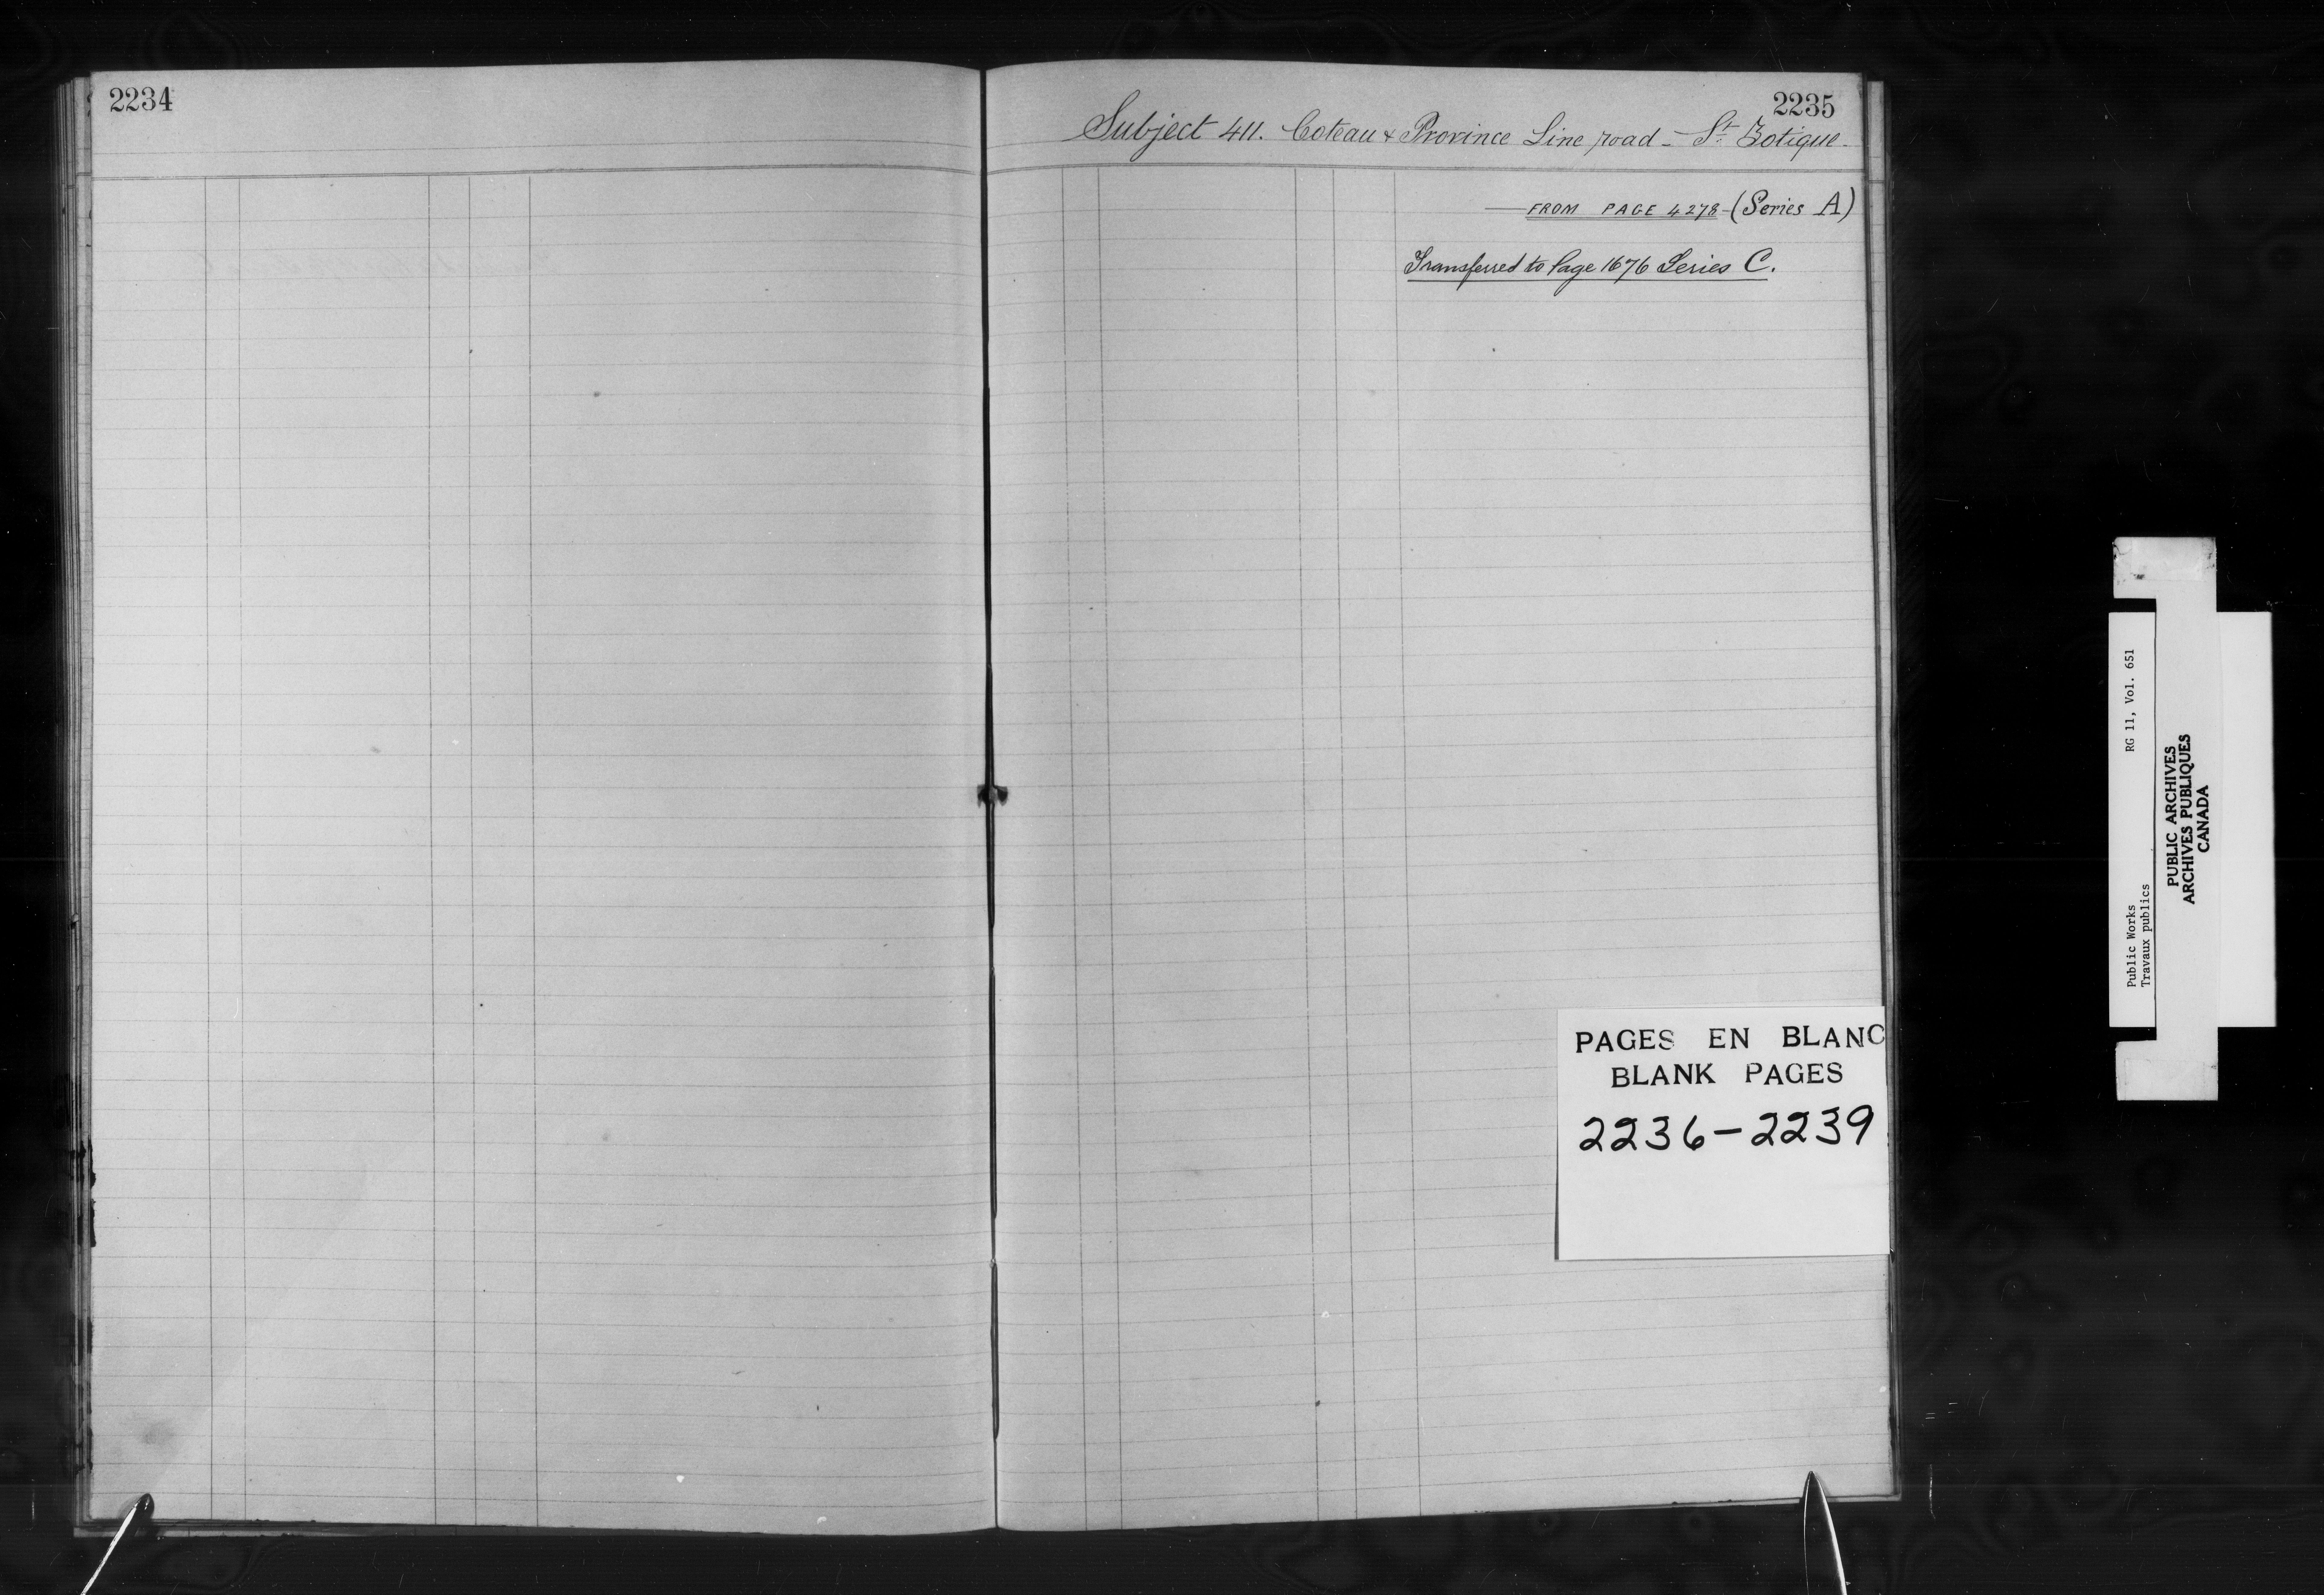 2234
2235
Subject 411. Coteau & Province Line road - St Zotique -
FROM PAGE 4278 - (Series A)
Transferred to Page 1676 Series C.
PAGES EN BLANC
BLANK PAGES
2236-2239
Public Works RG 11, Vol. 651
Travaux publics
PUBLIC ARCHIVES
ARCHIVES PUBLIQUES
CANADA